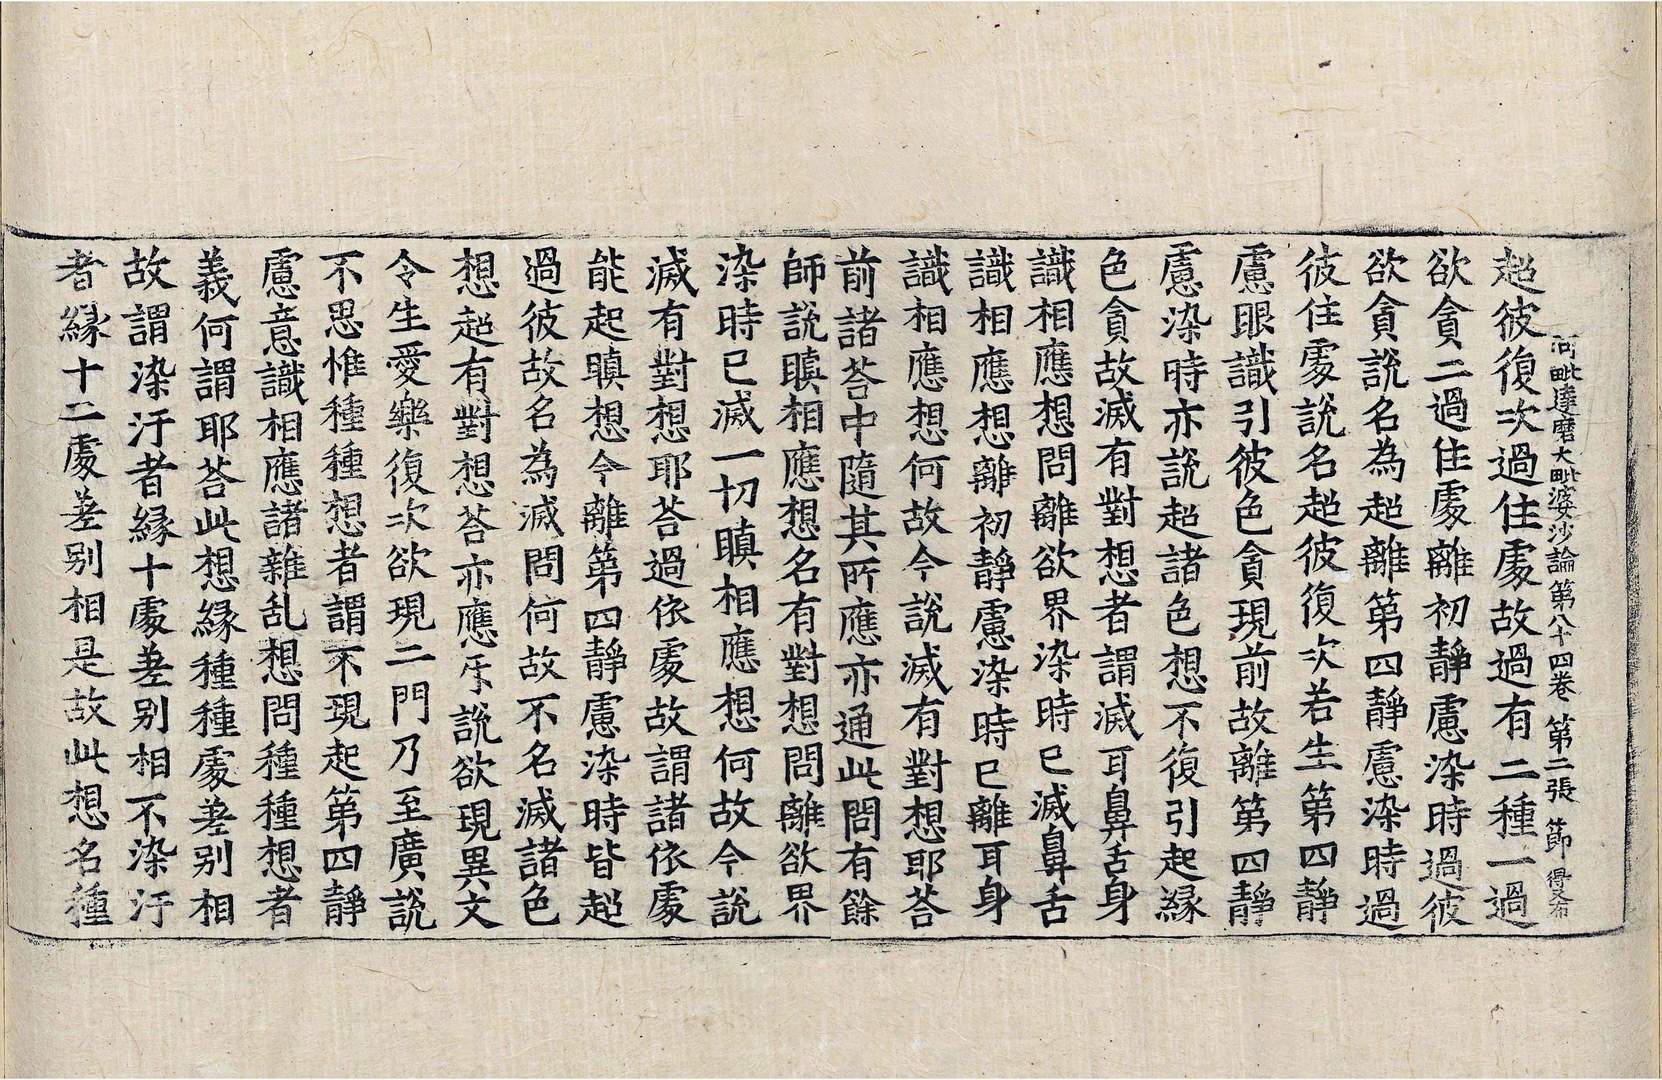 阿毗達磨大毗婆沙論第八十四卷 第二張 節
超彼復次過住處故過有二種一過
欲貪二過住處離初靜慮染時過彼
欲貪說名為超離第四靜慮染時過
彼住處說名超彼復次若生第四靜
慮眼識引彼色貪現前故離第四靜
慮染時亦說超諸色想不復引起緣
色貪故滅有對想者謂滅耳鼻舌身
識相應想問離欲界染時已滅鼻舌
識相應想離初靜慮染時已離耳身
識相應想何故今說滅有對想耶荅
前諸荅中隨其所應亦通此問有餘
師說瞋相應想名有對想問離欲界
染時已滅一切瞋相應想何故今說
滅有對想耶荅過依處故謂諸依處
能起瞋想今離第四靜慮染時皆超
過彼故名為滅問何故不名滅諸色
想超有對想荅亦應乐說欲現異文
令生愛樂復次欲現二門乃至廣說
不思惟種種想者謂不現起第四靜
慮意識相應諸雜乱想問種種想者
義何謂耶荅此想緣種種處差别相
故謂染汙者緣十處差别相不染汙
者緣十二處差别相是故此想名種